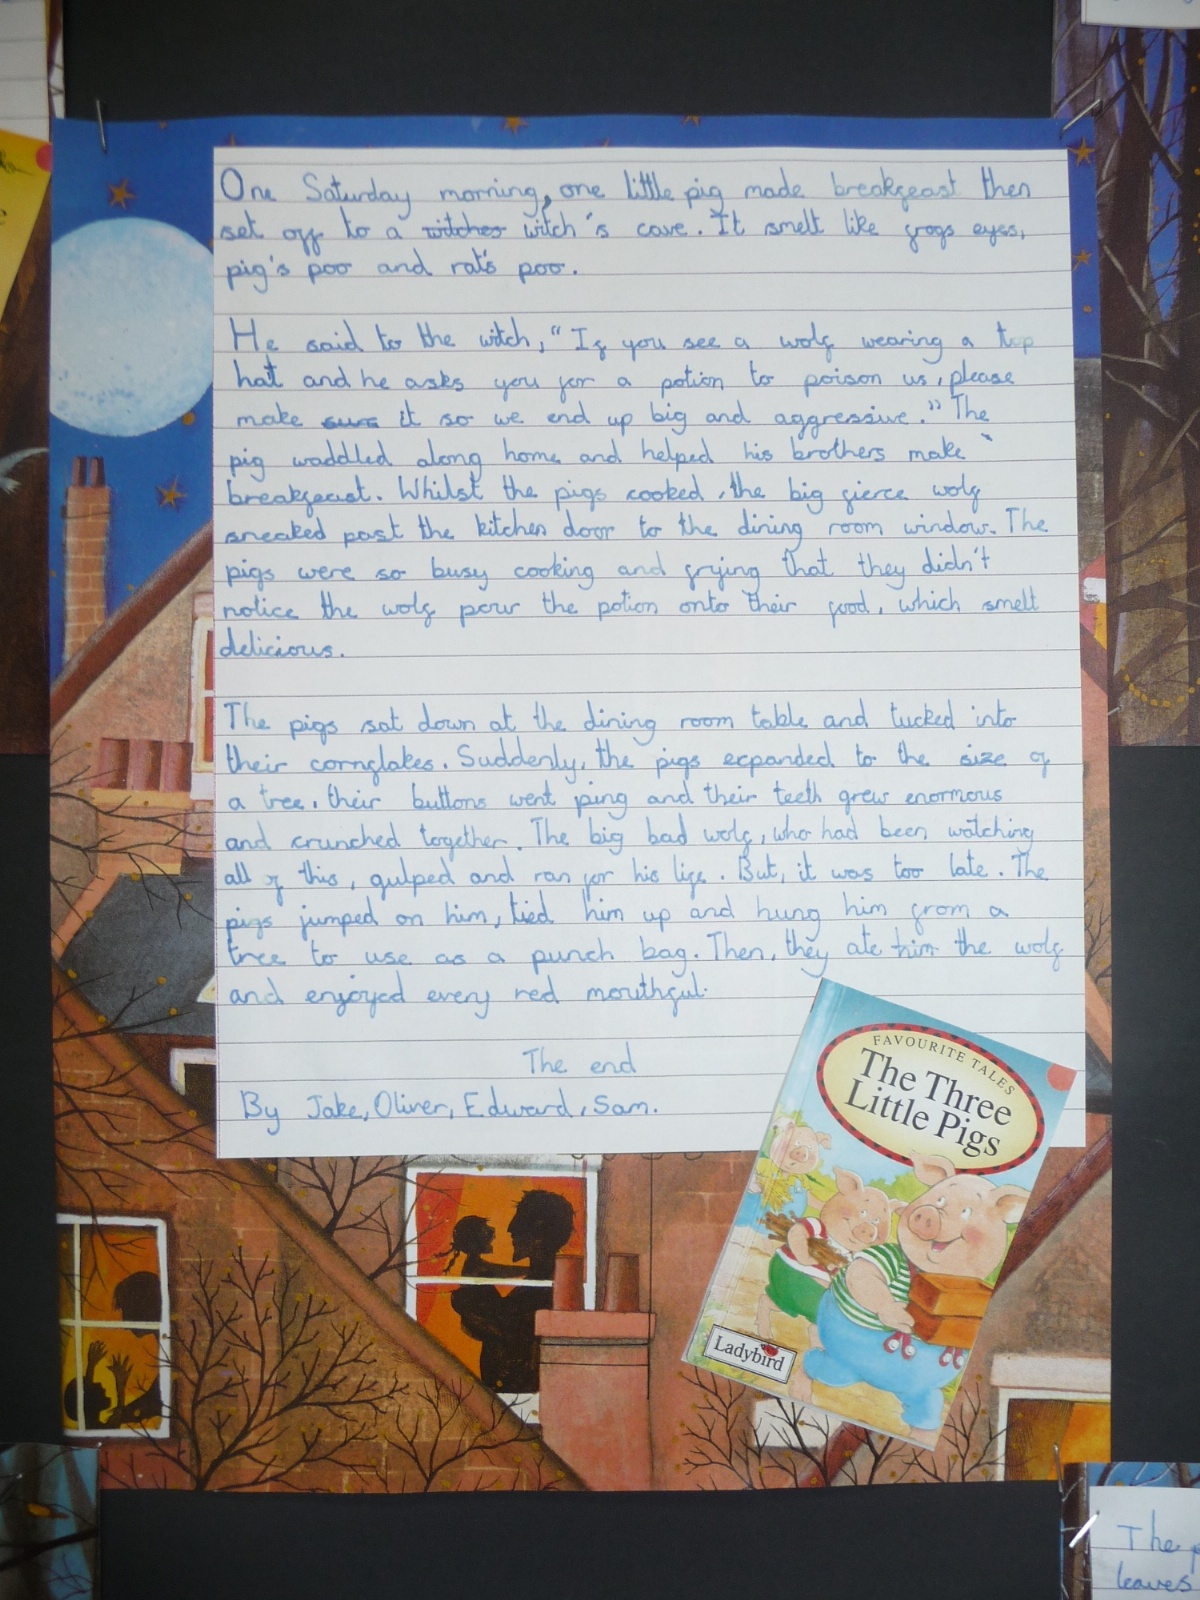 One Saturday morning, one little pig made breakfeast then
set off to a witches witch's cave. It smelt like frogs eyes,
pig's poo and rat's poo.
He said to the witch, "If you see a wolf wearing a top
hat and he asks you for a potion to poison us, please
make sure it so we end up big and aggressive." The
pig waddled along home and helped his brothers make
breakfeast. Whilst the pigs cooked, the big fierce wolf
sneaked past the kitchen door to the dining room window. The
pigs were so busy cooking and frying that they didn't
notice the wolf pour the potion onto their food, which smelt
delicious.
The pigs sat down at the dining room table and tucked into
their cornflakes. Suddenly, the pigs expanded to the size of
a tree, their buttons went ping and their teeth grew enormous
and crunched together. The big bad wolf, who had been watching
all of this, gulped and ran for his life. But, it was too late. The
pigs jumped on him, tied him up and hung him from a
tree to use as a punch bag. Then, they ate him the wolf
and enjoyed every red mouthful.
The end
By Jake, Oliver, Edward, Sam.
FAVOURITE TALES
The Three
Little Pigs
Ladybird
The
leaves